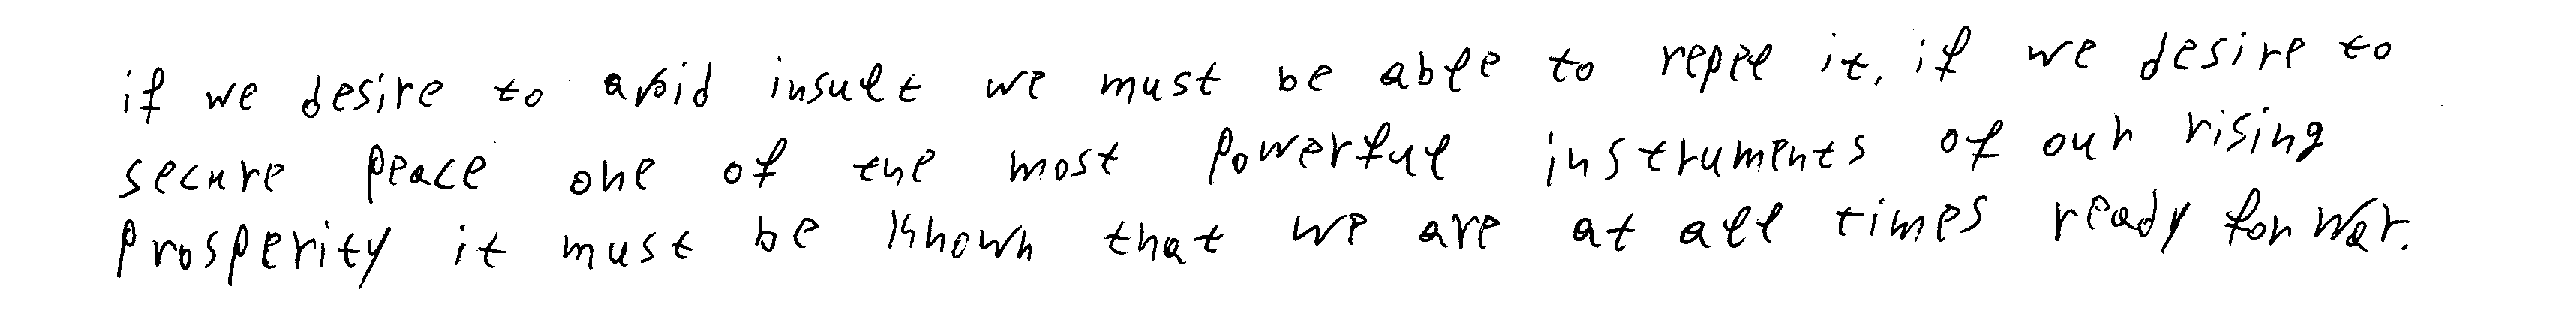 if we desire to avoid insult we must be able to repel it, if we desire to
secure peace one of the most powerful instruments of our rising
prosperity it must be known that we are at all times ready for war.